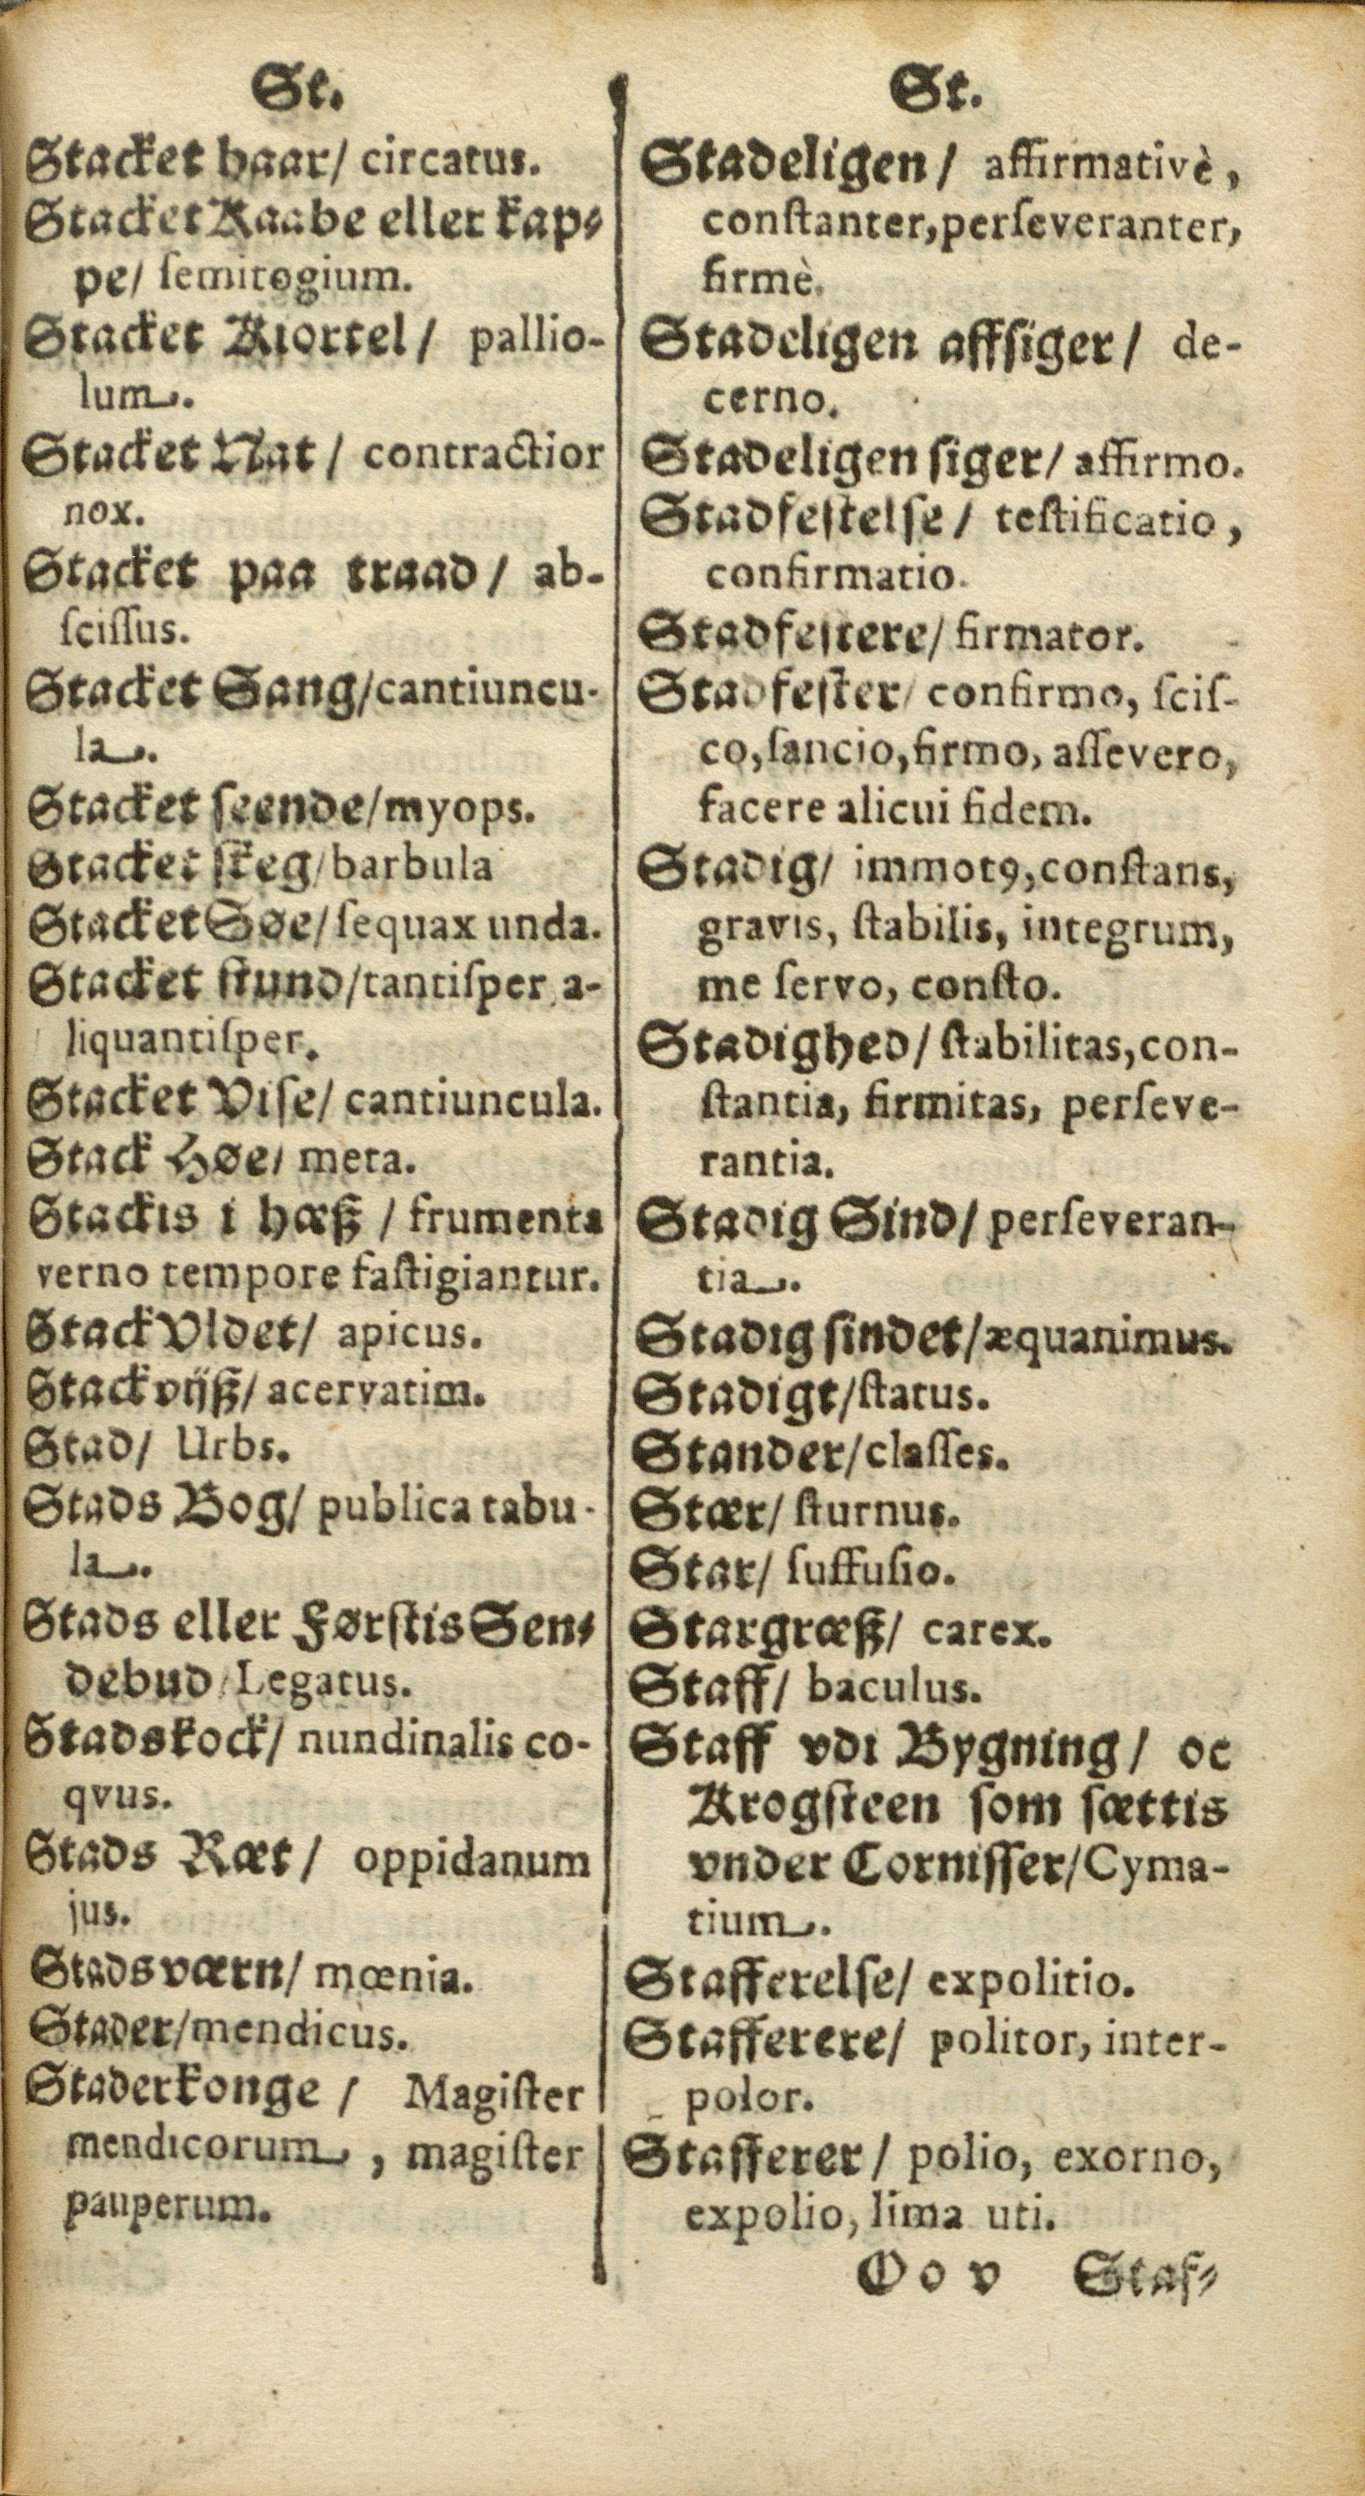 St.
Stacket haar/ circatus.
Stacket Kaabe eller kap⸗
pe/ ſemitogium.
Stacket Kiortel/ pallio-
lum.
Stacket Nat/ contractior
nox.
Stacket paa traad/ ab-
ſciſſus.
Stacket Sang/cantiuncu-
la.
Stacket ſeende/myops.
Stacket ſkeg/barbula
Stacket Søe/ſequax unda.
Stacket ſtund/tantiſper a-
liquantiſper.
Stacket Viſe/ cantiuncula.
Stack Høe/ meta.
Stackis i hæß / frumenta
verno tempore faſtigiantur.
Stack Vldet/ apicus.
Stack vijß/ acervatim.
Stad/ Urbs.
Stads Bog/ publica tabu-
la.
Stads eller Førſtis Sen⸗
debud/Legatus.
Stadskock/ nundinalis co-
qvus.
Stads Ræt/ oppidanum
jus.
Stadsværn/ mœnia.
Stader/mendicus.
Staderkonge / Magiſter
mendicorum, magiſter
pauperum.
St.
Stadeligen/ affirmativè,
conſtanter,perſeveranter,
firmè.
Stadeligen affſiger/ de-
cerno.
Stadeligen ſiger/ affirmo.
Stadfeſtelſe/ teſtificatio,
confirmatio.
Stadfeſtere/ firmator.
Stadfeſter/ confirmo, ſciſ-
co,ſancio,firmo, aſſevero,
facere alicui fidem.
Stadig/ immotꝰ,conſtans,
gravis, ſtabilis, integrum,
me ſervo, conſto.
Stadighed/ ſtabilitas,con-
ſtantia, firmitas, perſeve-
rantia.
Stadig Sind/ perſeveran-
tia.
Stadig ſindet/æquanimus.
Stadigt/ſtatus.
Stander/claſſes.
Stær/ ſturnus.
Star/ ſuffuſio.
Stargræß/ carex.
Staff/ baculus.
Staff vdi Bygning/ oc
Krogſteen ſom ſættis
vnder Corniſſer/Cyma-
tium.
Stafferelſe/ expolitio.
Stafferere/ politor, inter-
polor.
Stafferer/ polio, exorno,
expolio, lima uti.
O o v Staf⸗